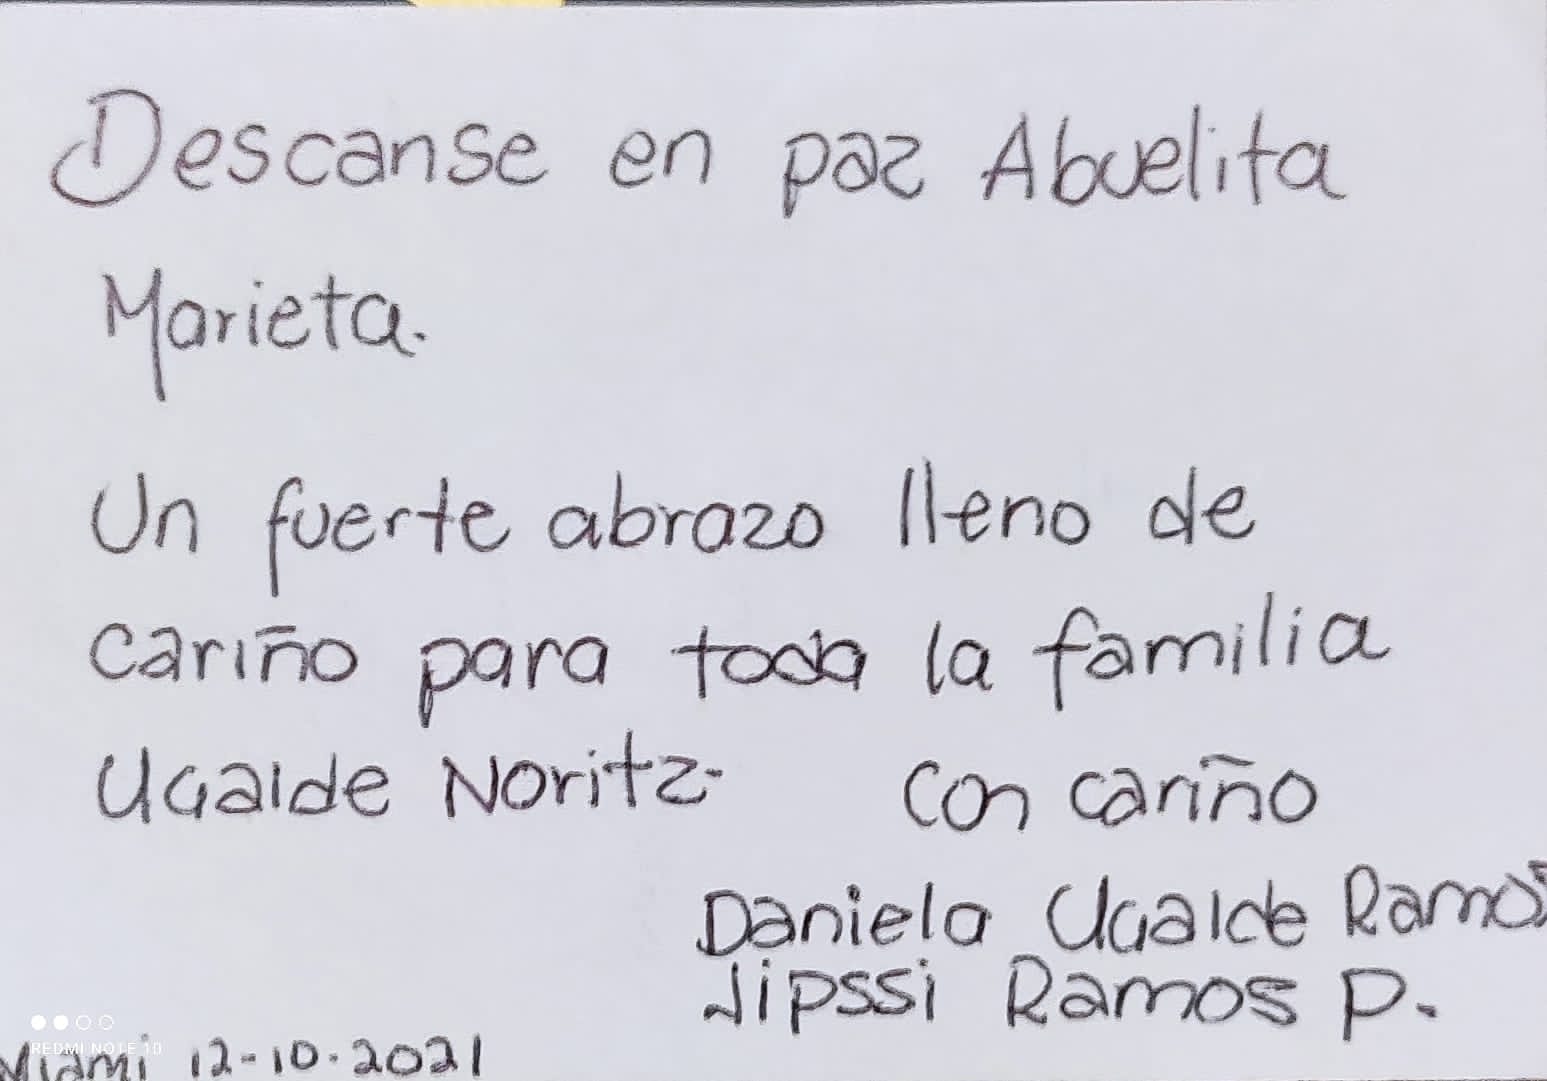 Descanse en paz Abuelita
Marieta.
Un fuerte abrazo lleno de
cariño para toda la familia
Ugalde Noritz.
Con cariño
Daniela Ugalde Ramos
Jipssi Ramos P.
REDMI NOTE 10
Miami 12-10-2021